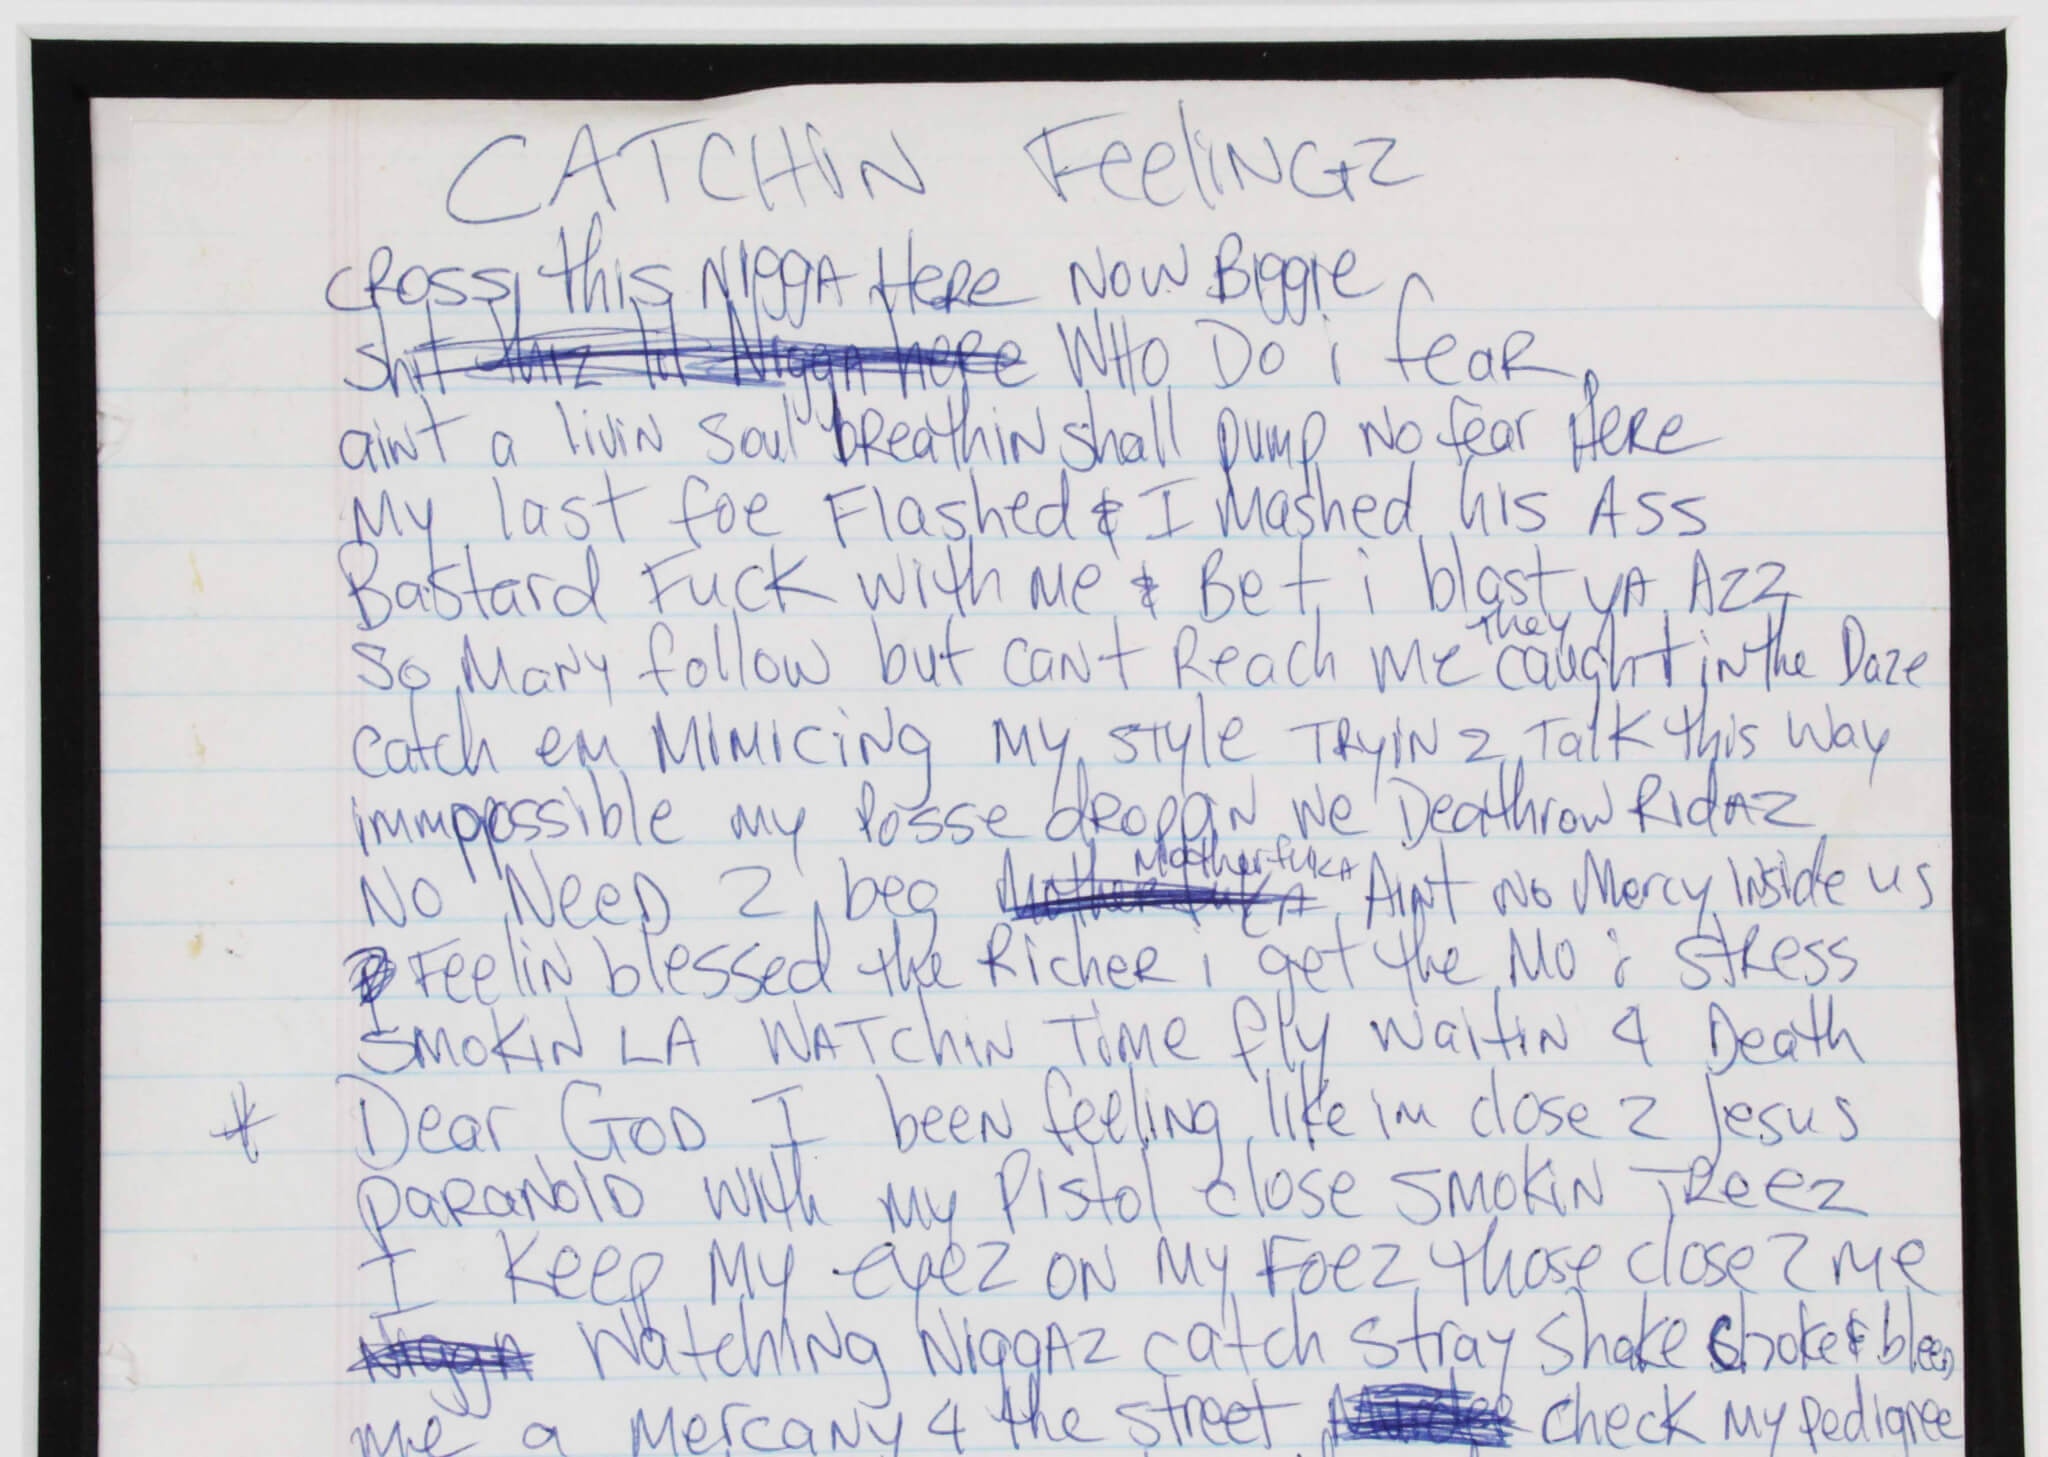 CATCHIN FeeliNGZ
CROSS this NiggA HeRe NOW BiggIe
Shit thiz lil NiggA here WHO Do i feaR
aint a livin soul breathin shall pump No fear HeRe
My last foe Flashed & I mashed his ASS
Bastard Fuck with me & Bet i blast yA AZZ
So Many follow but cant Reach Me they caught in the Daze
catch em MiMiciNg My STyle TRyiN 2 Talk this way
immpossible my Posse dRoppin we Deathrow RidAZ
NO NeeD 2 beg MotherfukA MotherfukA Aint No Mercy Inside us
Feelin blessed the RicheR i get the Mo i STRess
SMOKiN LA WATchiN TiMe fly waitin 4 Death
* Dear GoD I been feeling like im close 2 Jesus
PARANOiD with my Pistol close SMOKiN TReez
I Keep My eyez ON My Foez those close 2 me
NiggA Watching NiggAz catch stray shake choke & bleed
me a MercaNy 4 the street check my pedigree